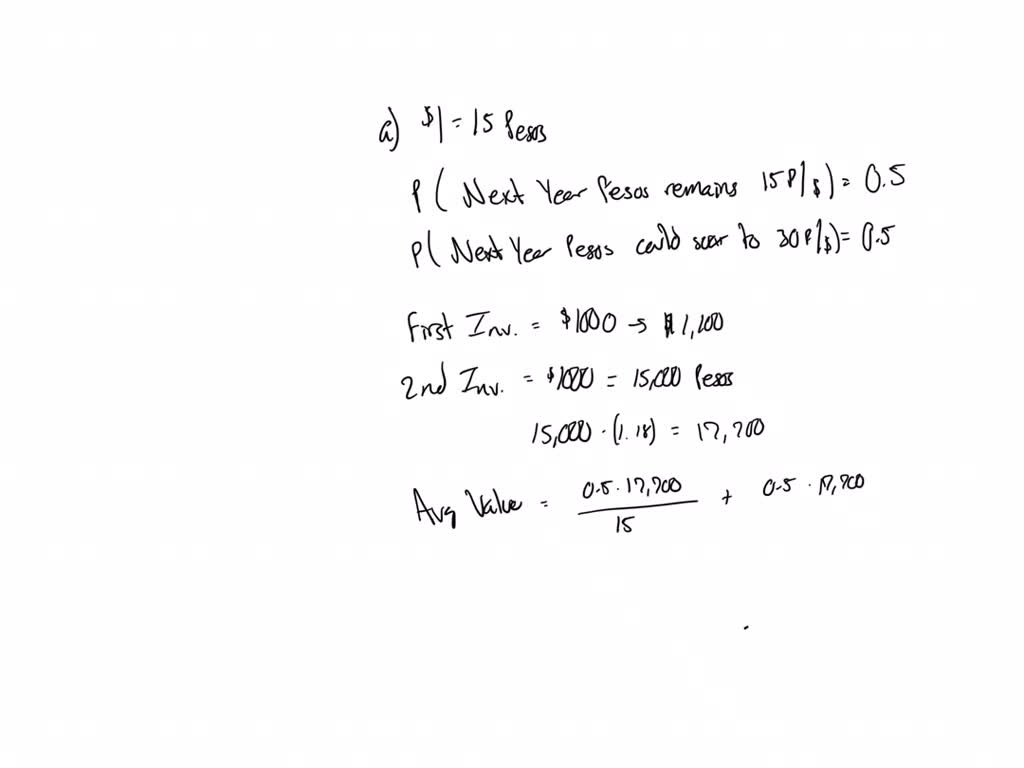 a) $1 = 15 Pesos
P( Next Year Pesos remains 15P/$) = 0.5
P( Next Year Pesos could soar to 30P/$) = 0.5
First Inv. = $1000 → $1,100
2nd Inv. = $1000 = 15,000 Pesos
15,000 · (1.18) = 17,700
Avg Value = 0.5 · 17,700 / 15 + 0.5 · 17,700